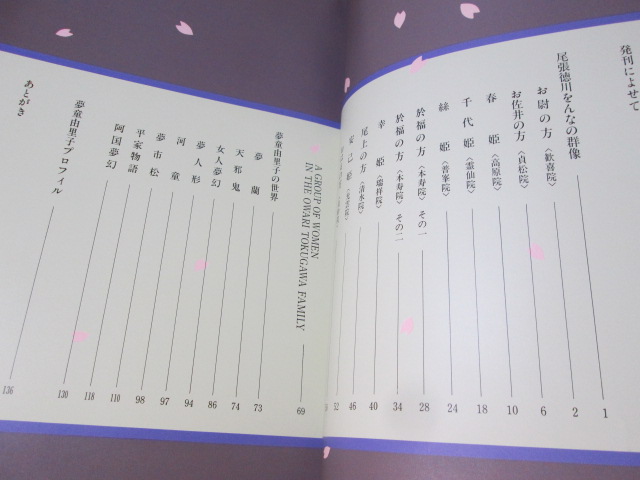 発刊によせて 1
尾張徳川をんなの群像 2
お尉の方〈歓喜院〉 6
お佐井の方〈貞松院〉 10
春姫〈高原院〉 18
千代姫〈霊仙院〉 24
絲姫〈普峯院〉 28
於福の方〈本寿院〉その一 34
於福の方〈本寿院〉その二 40
幸姫〈瑞祥院〉 46
尾上の方〈清水院〉 52
A GROUP OF WOMEN
IN THE OWARI TOKUGAWA FAMILY 69
夢童由里子の世界
夢蘭 73
天邪鬼 74
女人夢幻 86
夢人形 94
河童 97
夢市松 98
平家物語 110
阿国夢幻 118
夢童由里子プロフィル 130
あとがき 136